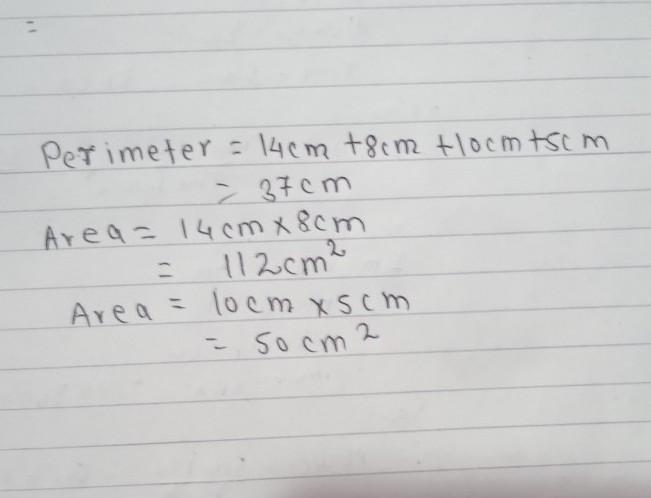 =
Perimeter = 14cm +8cm +10cm+5cm
= 37cm
Area = 14cm x 8cm
= 112cm²
Area = 10cm x 5cm
= 50cm²